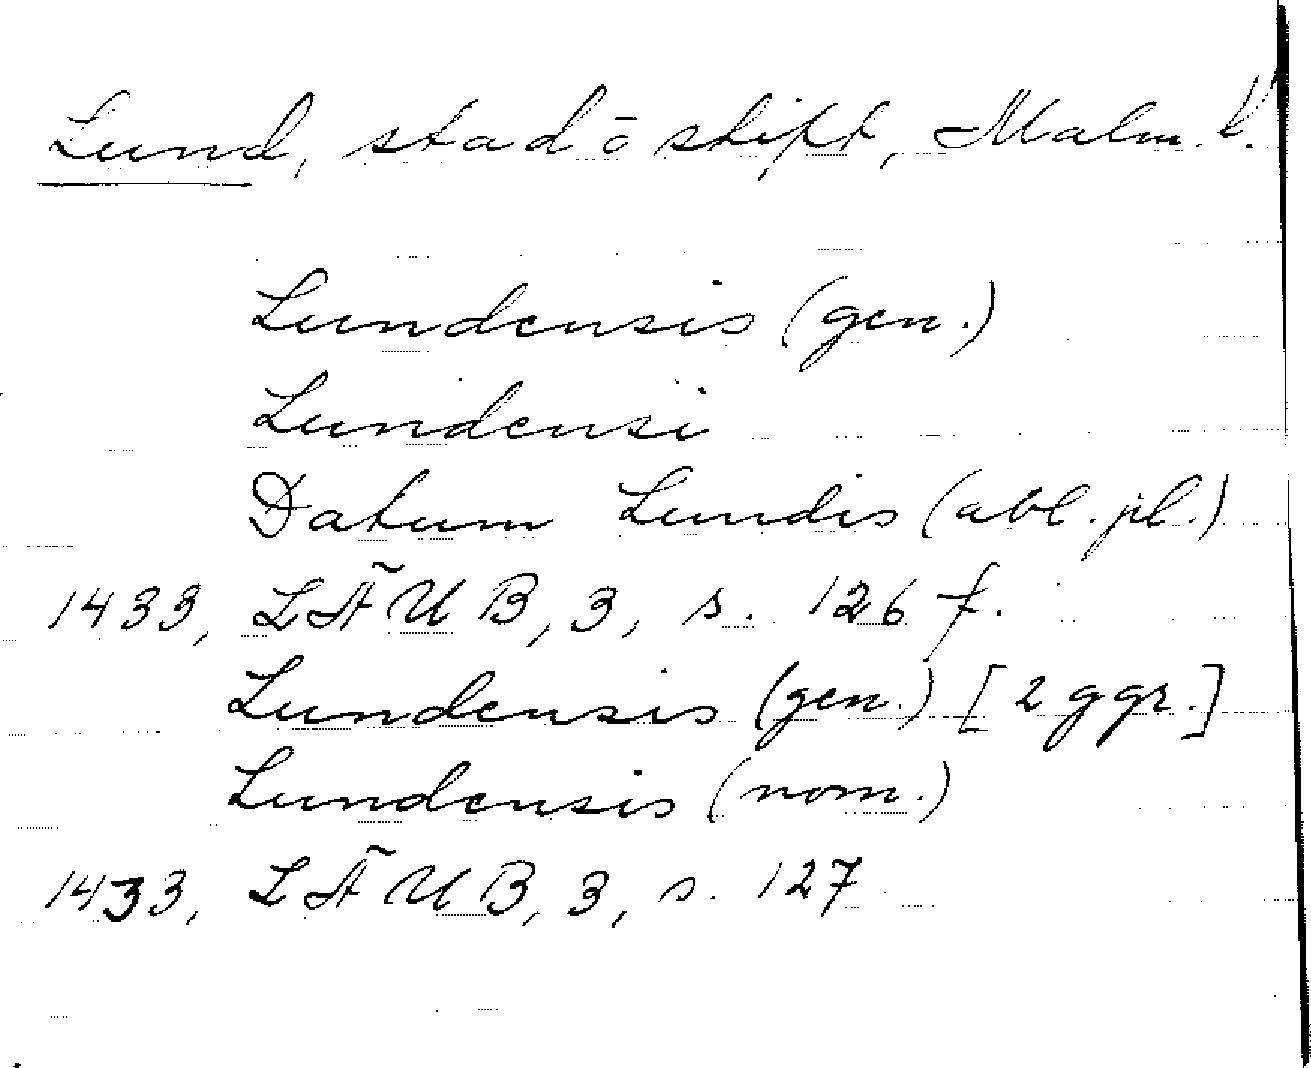 Lund, stad ō stift, Malm. l.
Lundensis (gen.)
Lundensi
Datum Lundis (abl. pl.)
1433, LÄUB, 3, s. 126 f.
Lundensis (gen.) [2 ggr.]
Lundensis (nom.)
1433, LÄUB, 3, s. 127